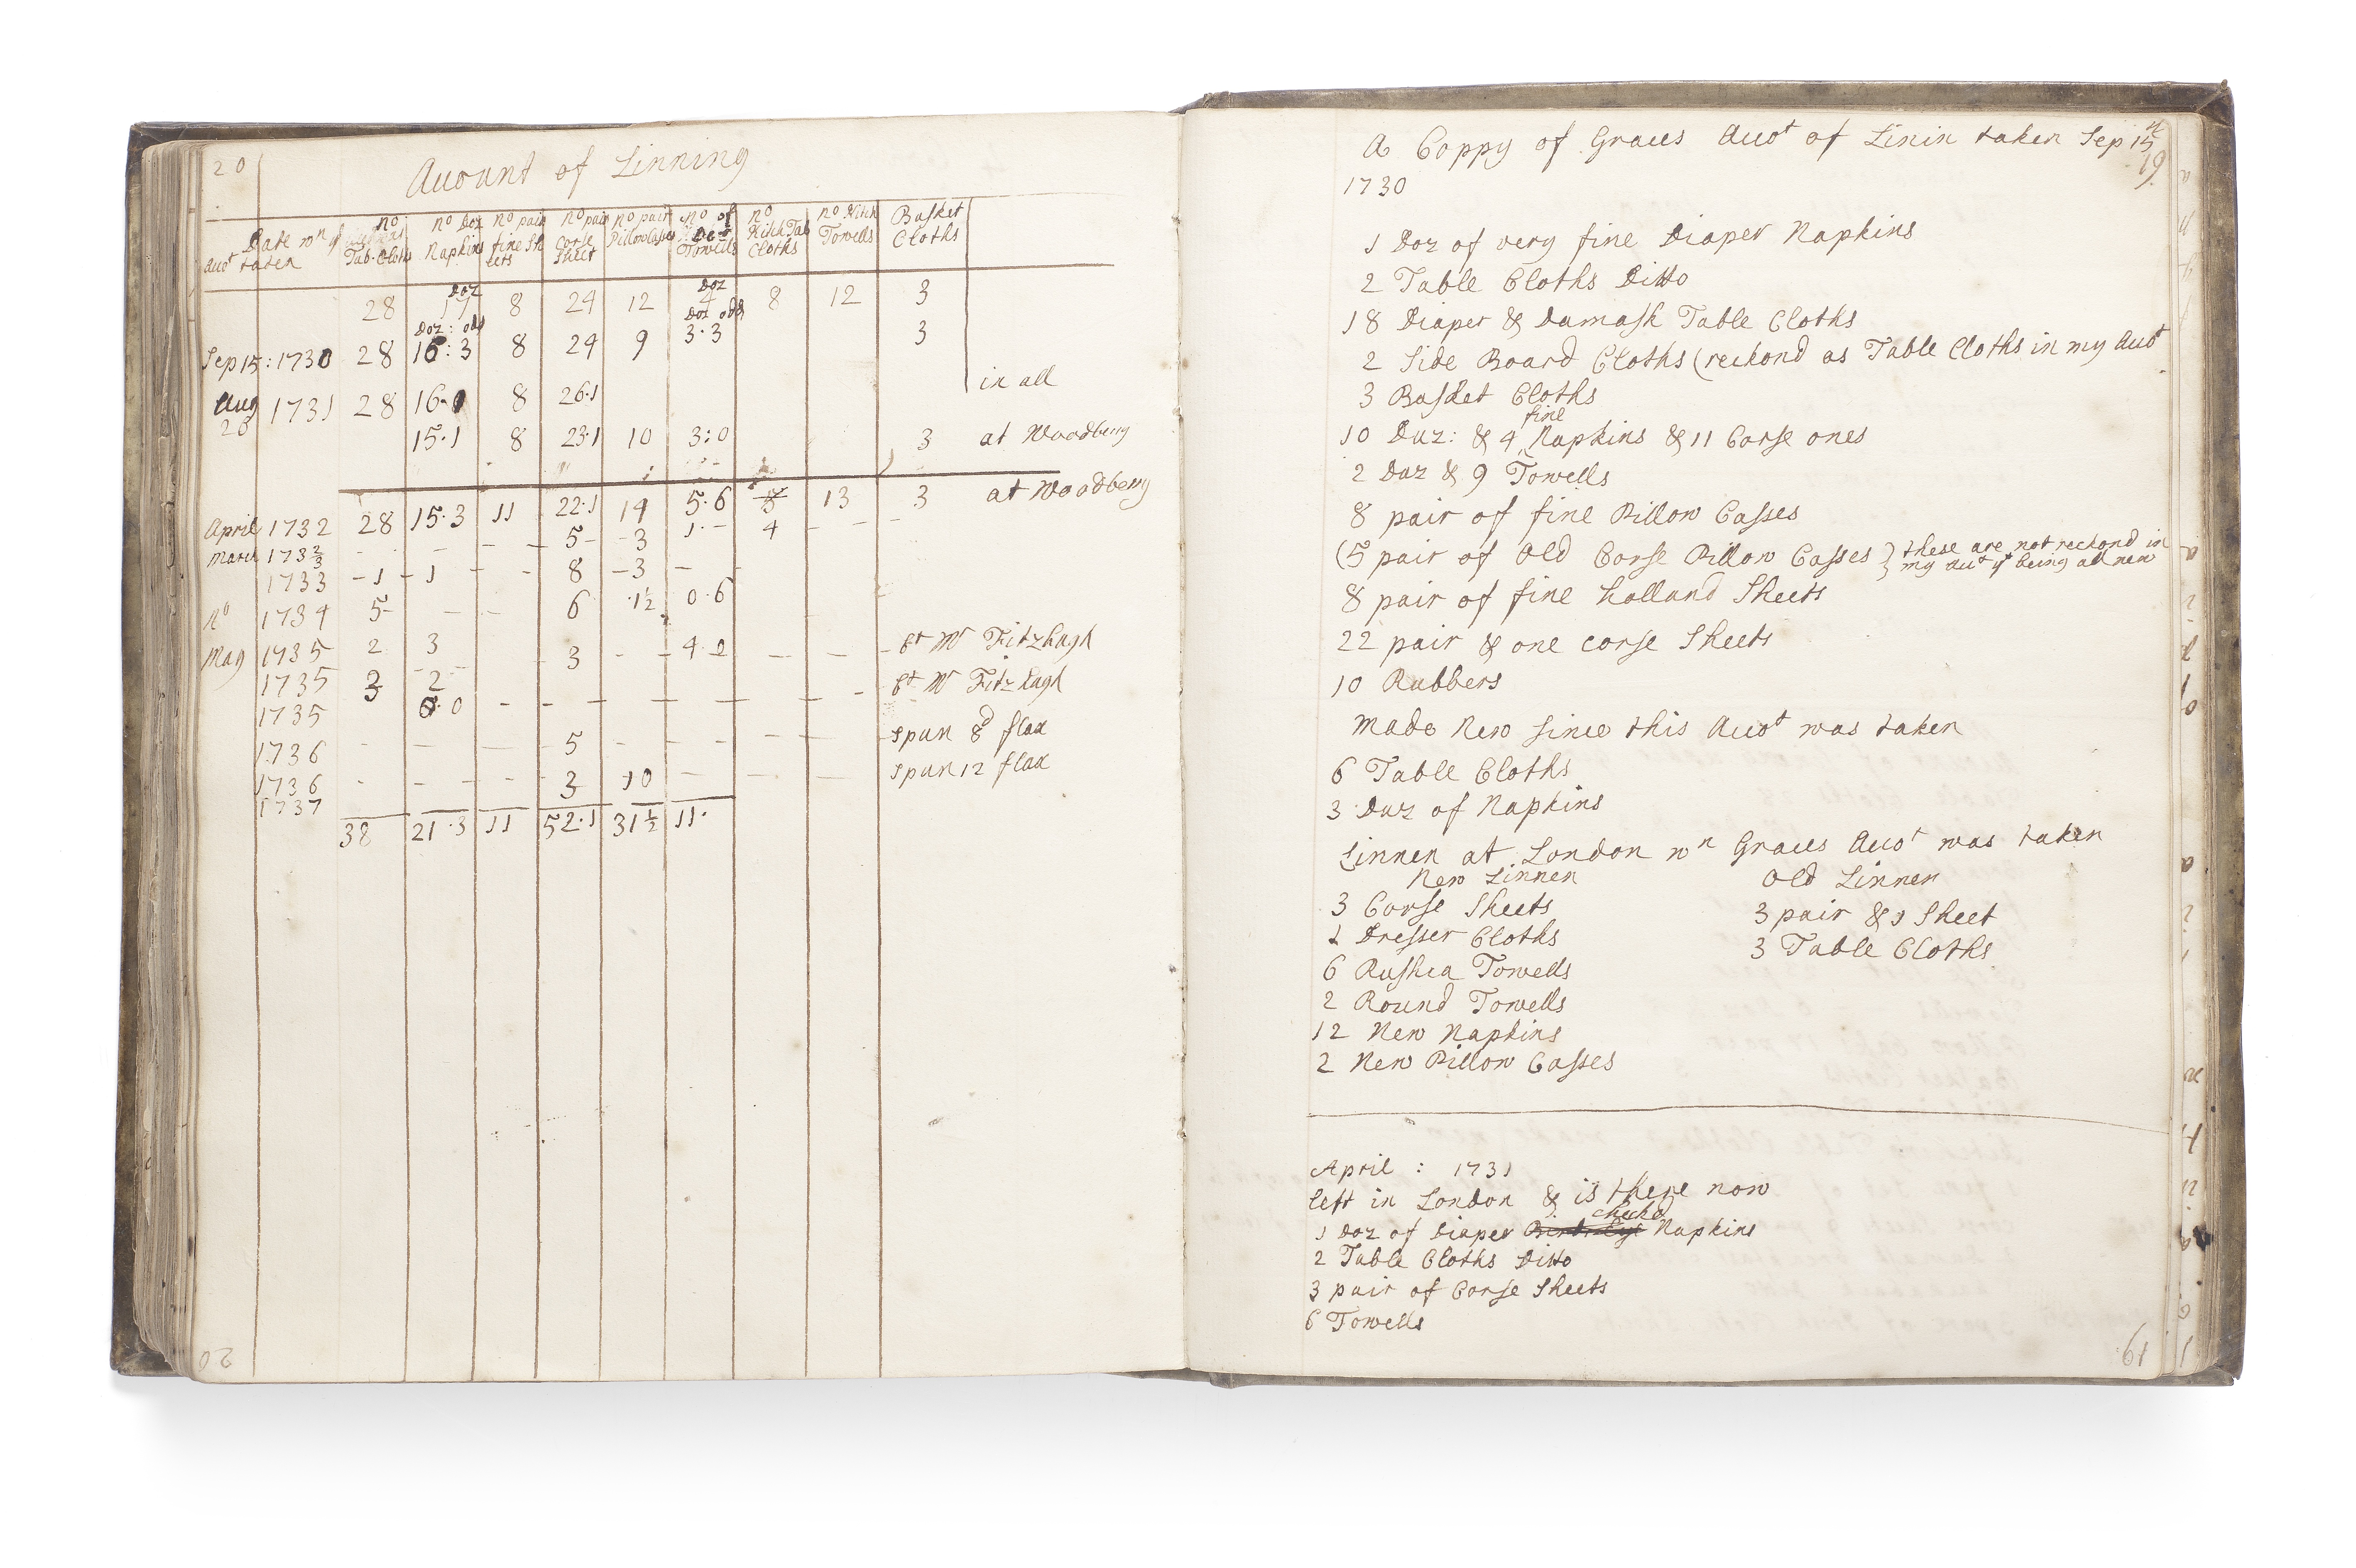 20
Auount of Linning
Date wn ys
Auot taken
no
Tab. Cloths
no Doz
Napkins
no pair
fine Sh
eets
no pair
Corse
Sheet
no pair
Pillow Cases
no of
Doz
Towells
no
Kitch Tab
Cloths
no Kitch
Towells
Basket
Cloths
28 17 Doz 8 24 12 4 Doz 8 12 3
Doz : odd Doz odd
Sep 15 : 1730 28 16 : 3 8 24 9 3 . 3 3
Aug 28 1731 28 16 . 0 8 26 . 1 in all
15 . 1 8 23 . 1 10 3 : 0 3 at Woodbery
April 1732 28 15 . 3 11 22 . 1 14 5 . 6 13 3 at Woodbery
March 173 2/3 - - - 5 - - 3 1 . - 4 - - -
1733 - 1 - 1 - - 8 - 3 - -
no 1734 5 - - - 6 . 1 1/2 0 . 6 -
May 1735 2 3 3 - - 4 . 0 - - - bt Mr Fitzhugh
1735 3 2 - - bt Mr Fitzhugh
1735 6 . 0 - - - - - - -
1736 - - - 5 - - - - - spun 8d flax
1736 - - - - 3 10 - - - spun 12 flax
1737
38 21 . 3 11 52 . 1 31 1/2 11 .
20
A Coppy of Graces Auot of Linin taken Sep 15th
19
1730
1 Doz of very fine Diaper Napkins
2 Table Cloths Ditto
18 Diaper & Damask Table Cloths
2 Side Board Cloths (reckond as Table Cloths in my Auot
3 Basket Cloths
10 Duz : & 4 fine Napkins & 11 Corse ones
2 Duz & 9 Towells
8 pair of fine Pillow Casses
(5 pair of Old Corse Pillow Casses } these are not reckond in
my Auot yt being all new
8 pair of fine holland Sheets
22 pair & one corse Sheets
10 Rubbers
Made New since this Auot was taken
6 Table Cloths
3 Duz of Napkins
Linnen at London wn Graces Auot was taken
New Linnen Old Linnen
3 Corse Sheets 3 pair & 1 Sheet
1 Dresser Cloths 3 Table Cloths
6 Rushea Towells
2 Round Towells
12 New Napkins
2 New Pillow Casses
April : 1731
left in London & is there now
1 Doz of Diaper checkd Napkins
2 Table Cloths Ditto
3 pair of Corse Sheets
6 Towells
19